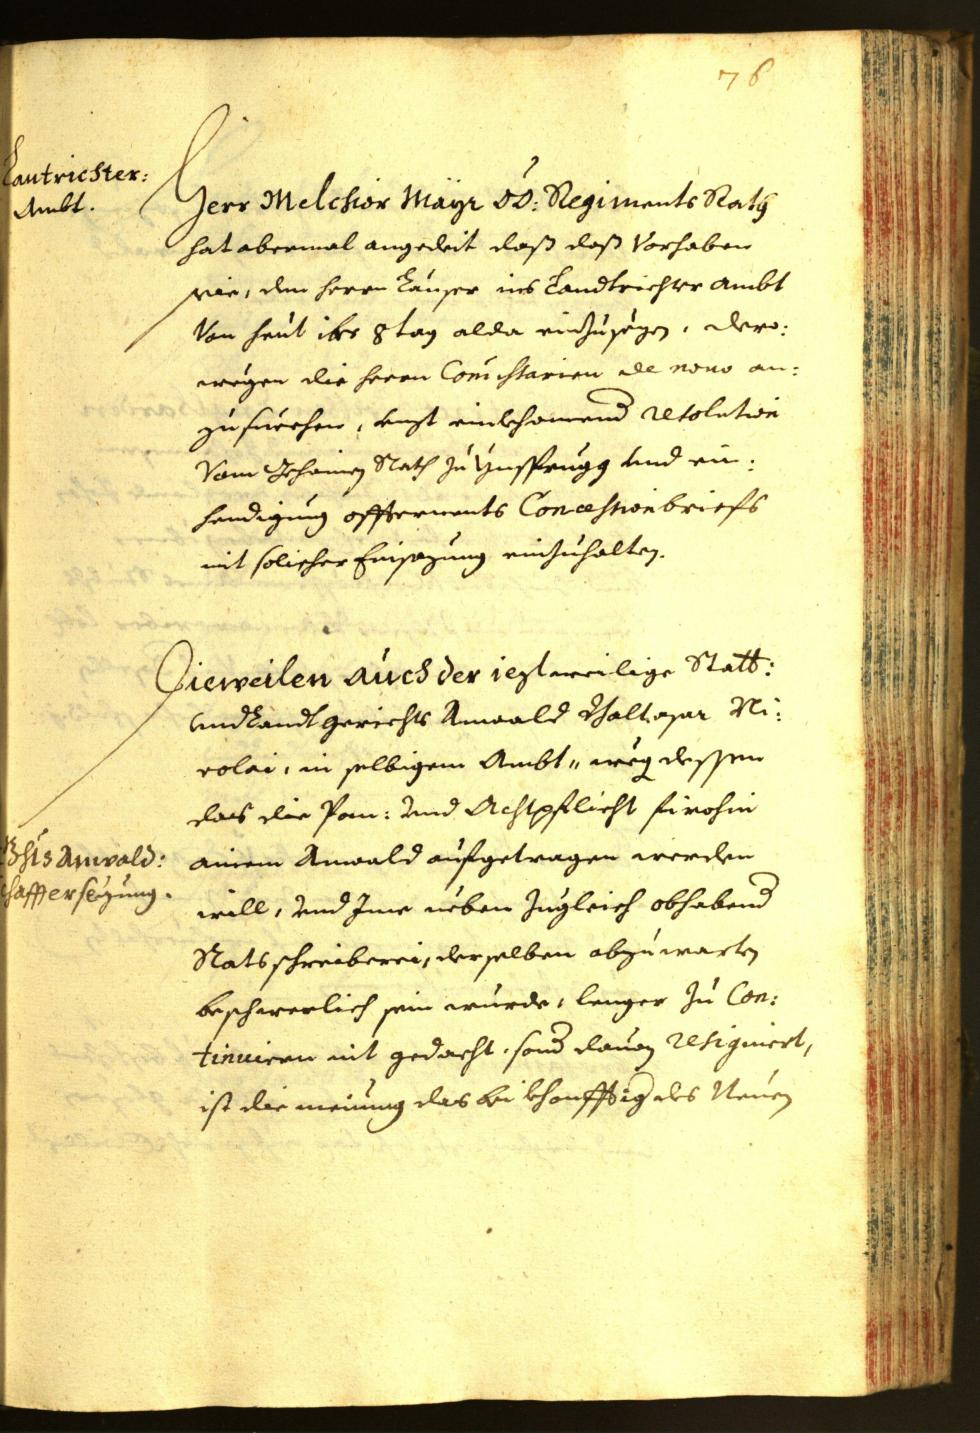 76
Lantrichter:
Ambt.
Herr Melchior Maÿr OÖ: Regiments Rath
hat abermal angedeit daß daß Vorhaben
seie, den herrn Lanser ins Landtrichter ambt
Von heut ibr 8 tag alda einzusezen, dero:
wegen die herrn Comissarien de novo an:
zusuechen, unzt einkhomend resolution
Vom Gehaimen Rath zu Ynsprugg und ein:
hendigung offternents Concessionbriefs
mit solicher Einsazung einzuhalten.
Dieweilen auch der ieztweilige Statt:
und Landtgerichts Anwald Balthasar Ni:
colai, in selbigem Ambt, weg dessen
das die Pan: und Achtpflicht firohin
ainem Anwald aufgetragen werden
will, und Ime neben zugleich obhabend
Ratsschreiberei, derselben abzuwarten
beschwerlich sein wurde, lenger zu Con:
tinuiern nit gedacht, sond davon resigniert,
ist die meinung das bei khonfftig des Neuen
Anwald:
schafft ersezung.